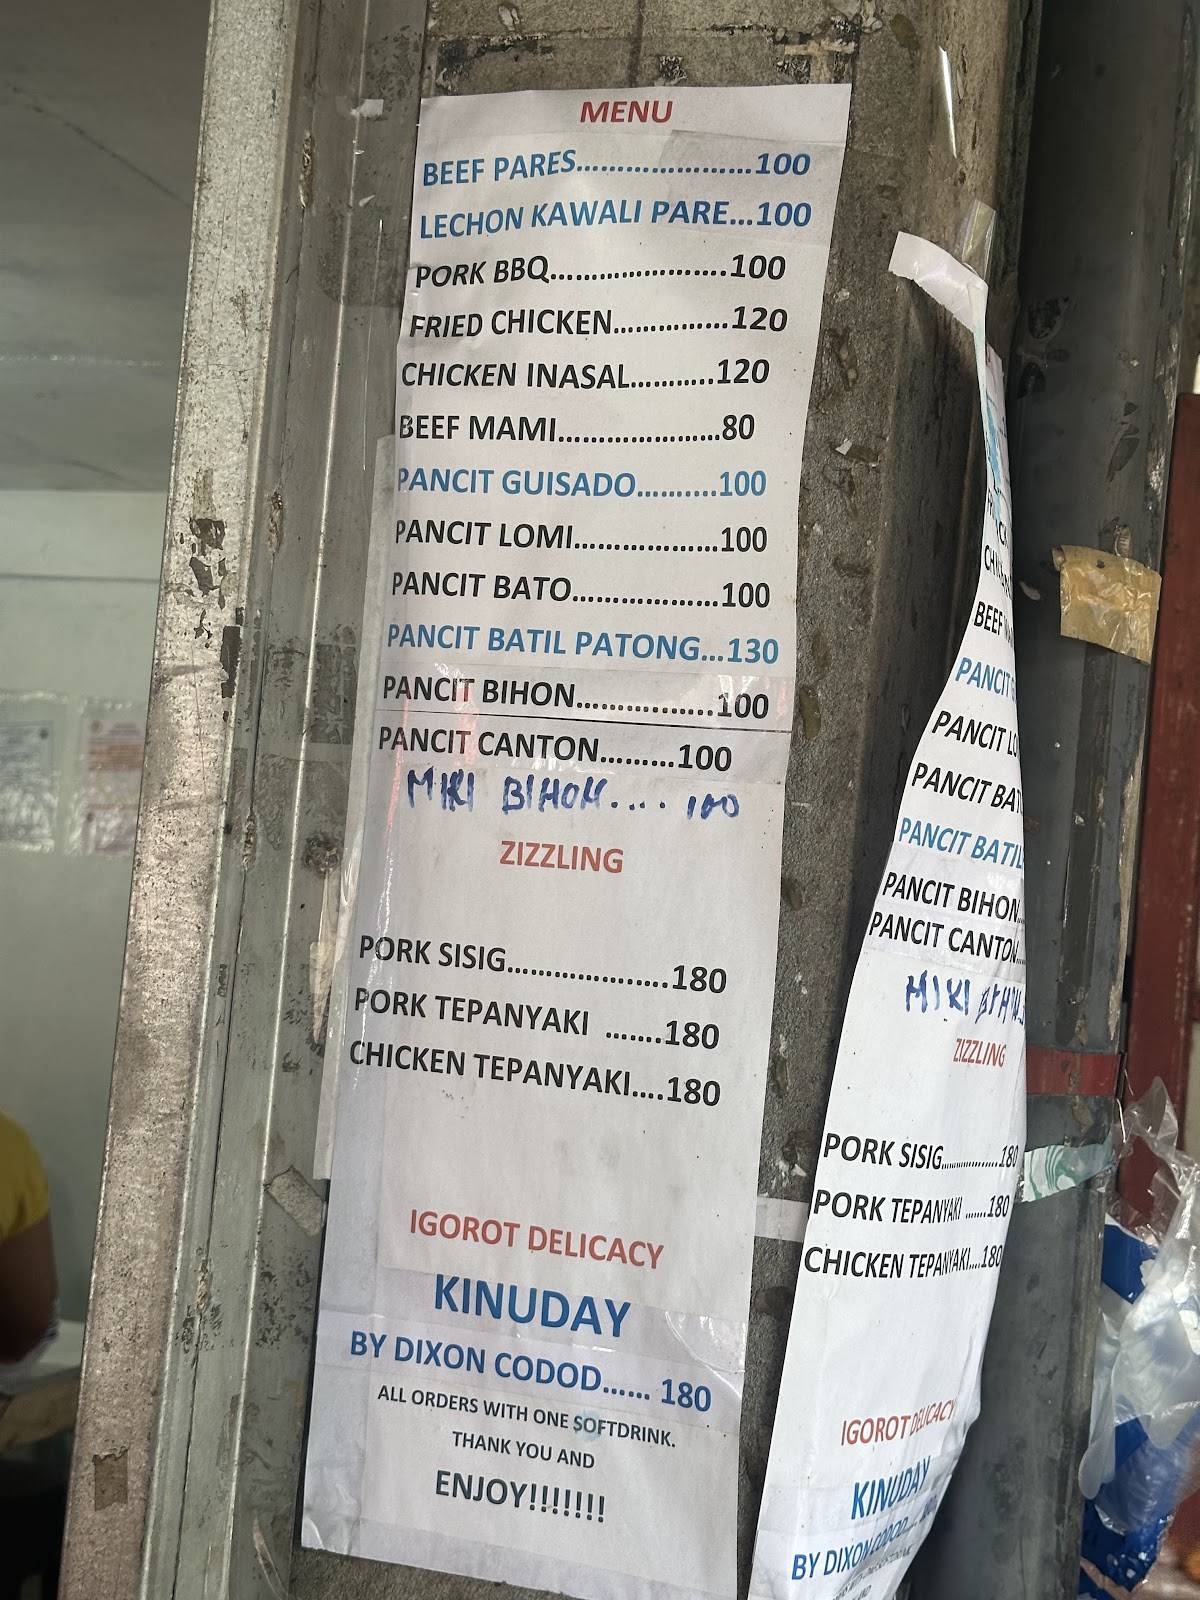 MENU
BEEF PARES........................100
LECHON KAWALI PARE...100
PORK BBQ........................100
FRIED CHICKEN................120
CHICKEN INASAL...........120
BEEF MAMI.......................80
PANCIT GUISADO..........100
PANCIT LOMI....................100
PANCIT BATO....................100
PANCIT BATIL PATONG...130
PANCIT BIHON..................100
PANCIT CANTON.........100
MIKI BIHON.... 100
ZIZZLING
PORK SISIG......................180
PORK TEPANYAKI .......180
CHICKEN TEPANYAKI....180
IGOROT DELICACY
KINUDAY
BY DIXON CODOD...... 180
ALL ORDERS WITH ONE SOFTDRINK.
THANK YOU AND
ENJOY!!!!!!!
BEEF
PANCIT
PANCIT LO
PANCIT BAT
PANCIT BATIL
PANCIT BIHON...
PANCIT CANTON...
MIKI BIHON
ZIZZLING
PORK SISIG..................180
PORK TEPANYAKI .......180
CHICKEN TEPANYAKI....180
IGOROT DELICACY
KINUDAY
BY DIXON CODOD